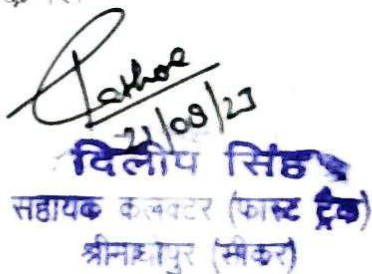 Rathore
21/08/23
दिलीप सिंह
सहायक कलक्टर (फास्ट ट्रैक)
श्रीमाधोपुर (सीकर)